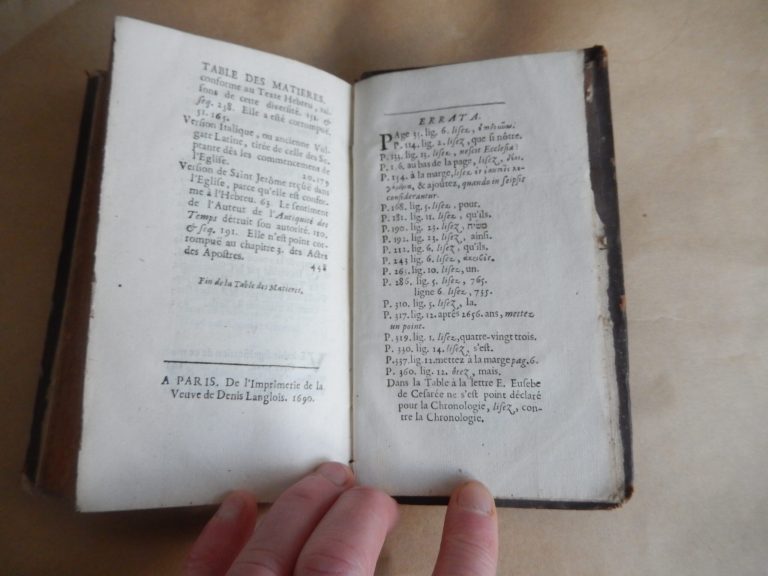 TABLE DES MATIERES.
conforme au Texte Hebreu, rai-
sons de cette diversité. 152. &
seq. 238. Elle a esté corrompuë.
51. 165.
Version Italique, ou ancienne Vul-
gate Latine, tirée de celle des Se-
ptante dés les commencemens de
l'Eglise. 20. 179
Version de Saint Jerôme reçuë dans
l'Eglise, parce qu'elle est confor-
me à l'Hebreu. 63. Le sentiment
de l'Auteur de l'Antiquité des
Temps détruit son autorité. 110.
& seq. 191. Elle n'est point cor-
rompuë au chapitre 3. des Actes
des Apostres. 458
Fin de la Table des Matieres.
A PARIS. De l'Imprimerie de la
Veuve de Denis Langlois. 1690.
ERRATA.
PAge 31. lig. 6. lisez,
P. 114. lig. 2. lisez, que si nôtre.
P. 131. lig. 13. lisez, nescit Ecclesia:
P. 1 6. au bas de la page, lisez,
P. 154. à la marge, lisez
& ajoûtez, quando in seipsis
considerantur.
P. 168. lig. 5. lisez, pour.
P. 181. lig. 11. lisez, qu'ils.
P. 190. lig. 23. lisez, משיח
P. 192. lig. 23. lisez, ainsi.
P. 212. lig. 6. lisez, qu'ils.
P. 243 lig. 6. lisez,
P. 261. lig. 10. lisez, un.
P. 286. lig. 5. lisez, 765.
ligne 6. lisez, 735.
P. 310. lig. 5. lisez, la.
P. 317. lig. 12. aprés 2656. ans, mettez
un point.
P. 319. lig. 1. lisez, quatre-vingt trois.
P. 330. lig. 14. lisez, s'est.
P. 337. lig. 12. mettez à la marge pag. 6.
P. 360. lig. 12. ôtez, mais.
Dans la Table à la lettre E. Eusebe
de Cesarée ne s'est point déclaré
pour la Chronologie, lisez, con-
tre la Chronologie.